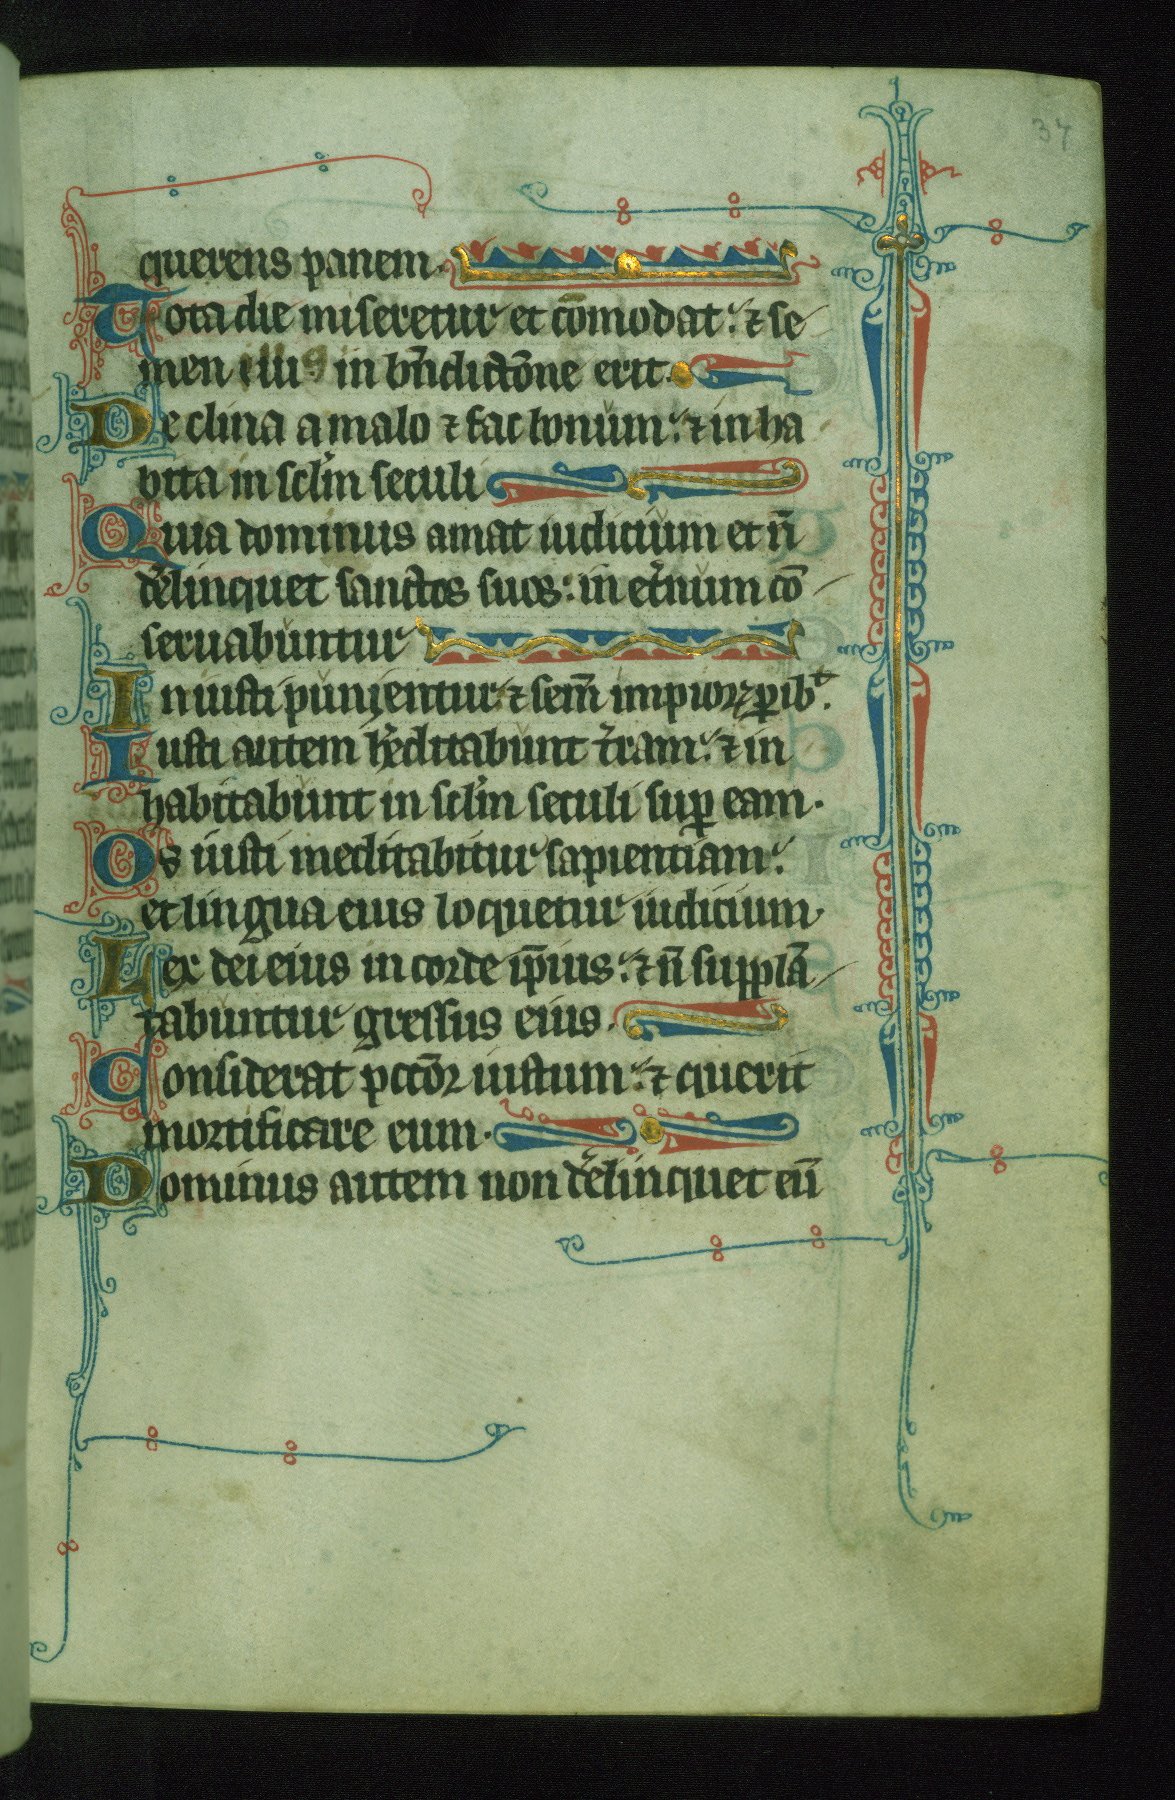 37
querens panem.
Tota die miseretur et cōmodat: ⁊ se
men illiꝰ in bn̄dictōne erit.
Declina a malo ⁊ fac bonum: ⁊ inha
bita in sclm̄ seculi
Quia dominus amat iudicium et n̄
derelinquet sanctos suos: in et̄num cō
seruabuntur
Iniusti punientur: ⁊ sem̄ impioꝝ ꝑibᵗ.
Iusti autem h̄editabunt t̄ram: ⁊ in
habitabunt in sclm̄ seculi suꝑ eam.
Os iusti meditabitur sapientiam:
et lingua eius loquetur iudicium.
Lex dei eius in corde ip̄ius: ⁊ n̄ supplā
tabuntur gressus eius.
Considerat pctōr iustum: ⁊ querit
mortificare eum.
Dominus autem non d̄elinquet eū